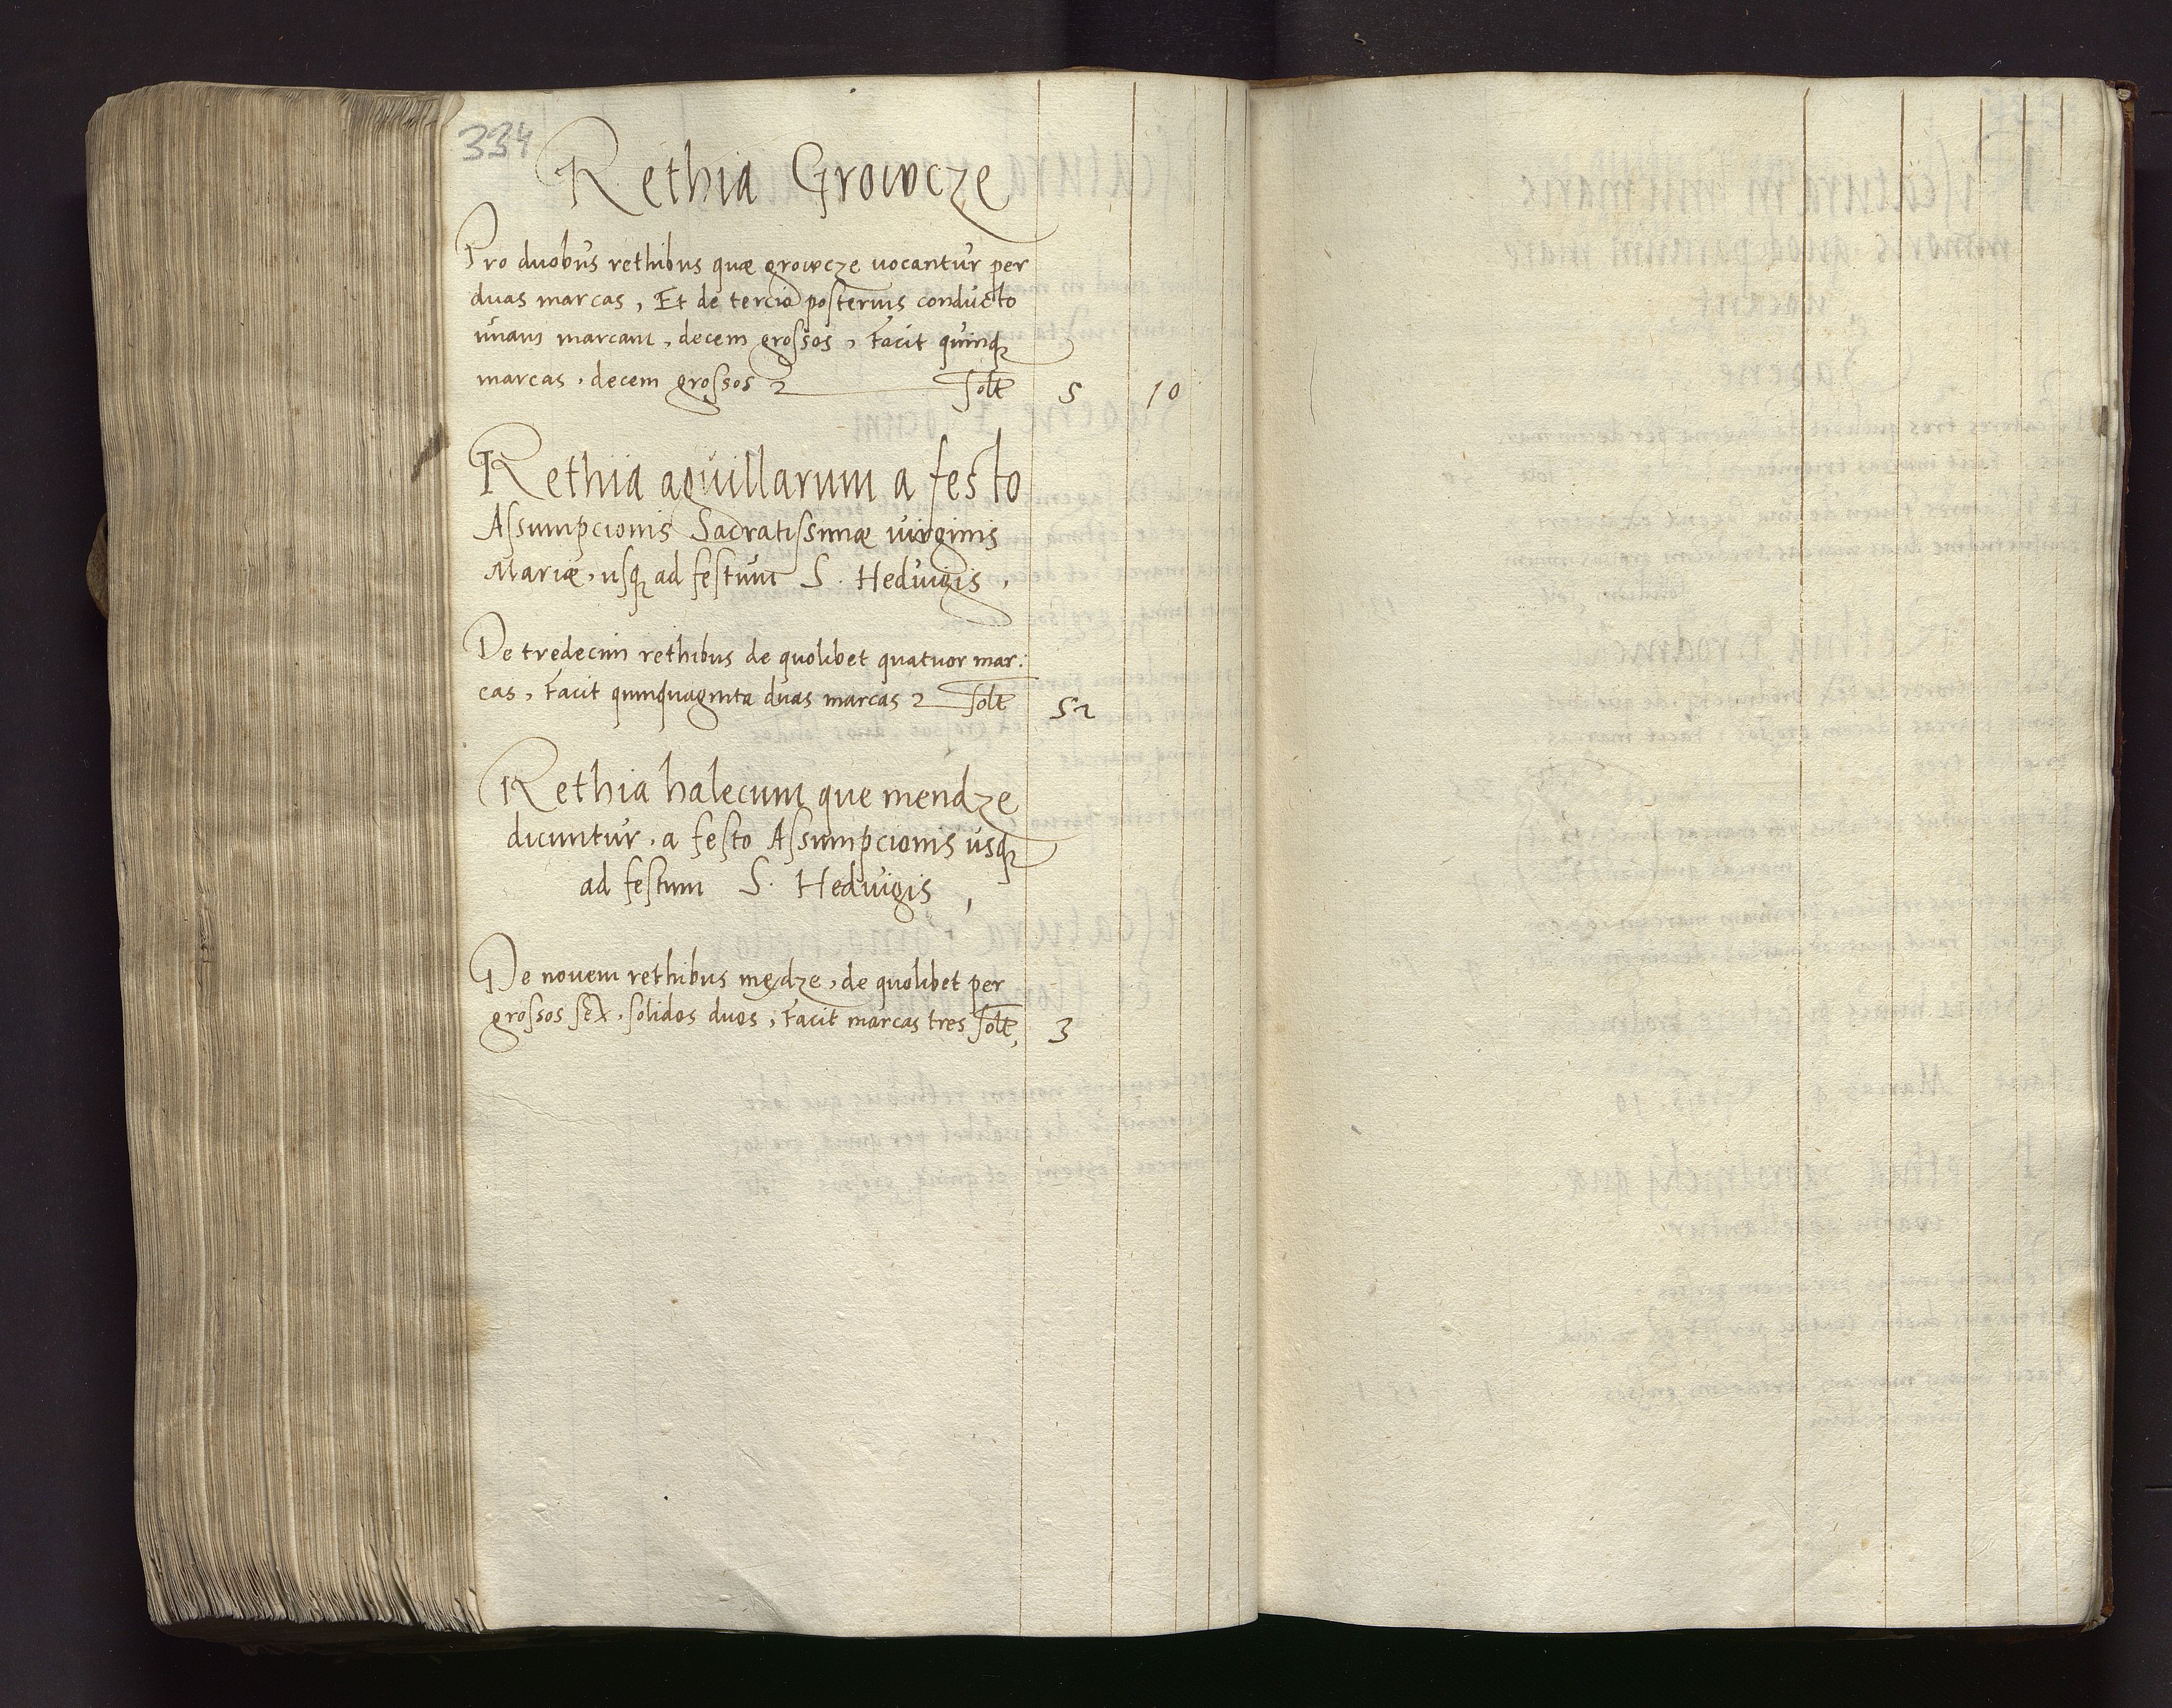 334
Rethia Growcze
Pro duobus rethibus quæ growcze uocantur per
duas marcas, Et de tercio posterius conducto
unam marcam, decem grossos, Facit quinq
marcas, decem grossos solt 5 10
Rethia aguillarum a festo
Assumpcionis Sacratissimæ virginis
Mariæ, usq ad festum S. Heduigis,
De tredecim rethibus de quolibet quatuor mar:
cas, Facit quinquaginta duas marcas solt 52
Rethia halecum que mendze
dicuntur, a festo Assumpcionis usq
ad festum S. Heduigis,
De novem rethibus mędze, de quolibet per
grossos sex, solidos duos, Facit marcas tres solt, 3